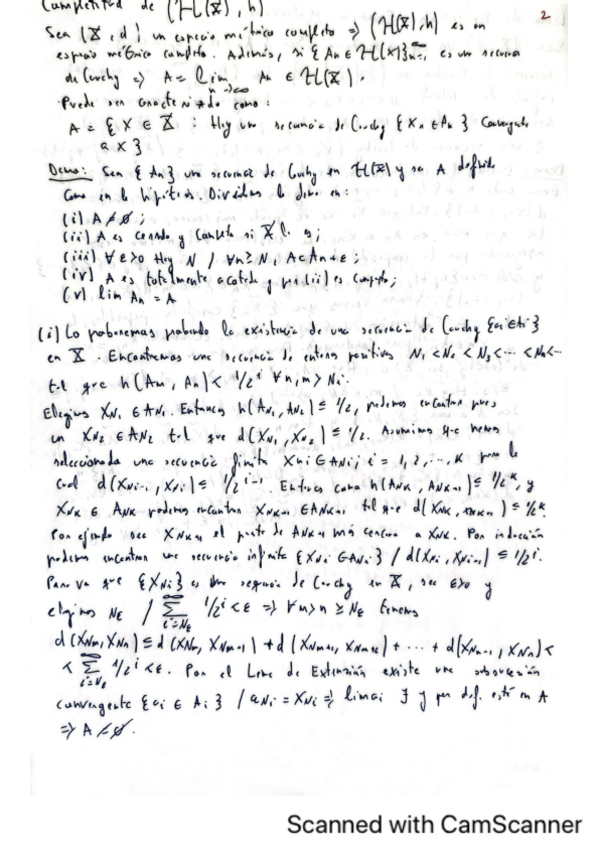 Completitud de (H(X), h)
2
Sea (X, d) un espacio métrico completo ⇒ (H(X), h) es un
espacio métrico completo. Además, si {An ∈ H(X)}n=1^∞ es una sucesión
de Cauchy ⇒ A = lim n→∞ An ∈ H(X).
Puede ser caracterizado como:
A = {x ∈ X : Hay una secuencia de Cauchy {Xn ∈ An} convergente
a x}
Demo: Sea {An} una secuencia de Cauchy en H(X) y sea A definido
como en la hipótesis. Dividimos la demo en:
(i) A ≠ ∅;
(ii) A es cerrado y completo si X lo es;
(iii) ∀ε>0 Hay N / ∀n≥N, A⊂An+ε;
(iv) A es totalmente acotado y por (ii) es compacto;
(v) lim An = A
(i) Lo probaremos probando la existencia de una secuencia de Cauchy {ai∈Ai}
en X. Encontraremos una secuencia de enteros positivos N1<N2<N3<...<Nn<...
tal que h(Am, An) < 1/2^i ∀n,m > Ni.
Elegimos XN1 ∈ AN1. Entonces h(AN1, AN2) ≤ 1/2, podemos encontrar pues
un XN2 ∈ AN2 tal que d(XN1, XN2) ≤ 1/2. Asumimos que hemos
seleccionado una secuencia finita XNi ∈ ANi; i = 1, 2, ..., K para la
cual d(XNi-1, XNi) ≤ 1/2^i-1. Entonces como h(ANK, ANK+1) ≤ 1/2^K, y
XNK ∈ ANK podemos encontrar XNK+1 ∈ ANK+1 tal que d(XNK, XNK+1) ≤ 1/2^K.
Por ejemplo sea XNK+1 el punto de ANK+1 más cercano a XNK. Por inducción
podemos encontrar una secuencia infinita {XNi ∈ ANi} / d(XNi, XNi+1) ≤ 1/2^i.
Para ver que {XNi} es una secuencia de Cauchy en X, sea ε>0 y
elegimos Nε / ∑ i=Nε ^∞ 1/2^i < ε ⇒ ∀m>n ≥ Nε tenemos
d(XNm, XNn) ≤ d(XNm, XNm+1) + d(XNm+1, XNm+2) + ... + d(XNn-1, XNn) <
< ∑ i=Nε ^∞ 1/2^i < ε. Por el Lema de Extensión existe una
convergente {ai ∈ Ai} / aNi = XNi ⇒ lim ai ∃ y por def. está en A
⇒ A ≠ ∅.
Scanned with CamScanner